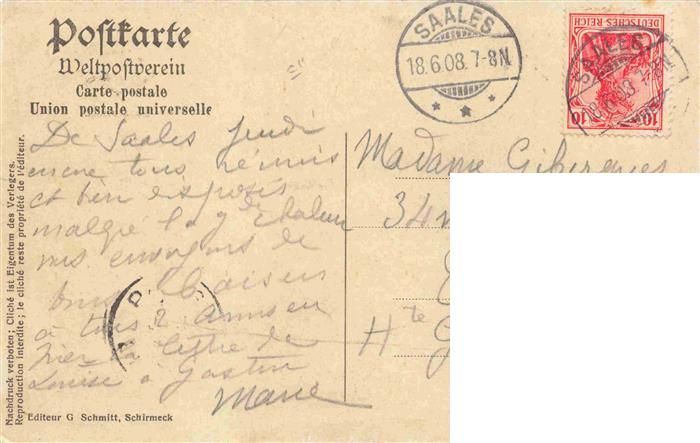 Postkarte
Weltpostverein
Carte postale
Union postale universelle
SAALES
18.6.08. 7-8N.
DEUTSCHES REICH
10 10
SAALES
De Saales Jeudi
encore tous réunis
et bien disposés
malgré la gde chaleur
vous envoyons de
bons baisers
à tous
hier la lettre de
Louise à Gaston
Marie
Madame
34
Hte G
Nachdruck verboten; Cliché ist Eigentum des Verlegers.
Reproduction interdite; le cliché reste propriété de l'éditeur.
Editeur G Schmitt, Schirmeck